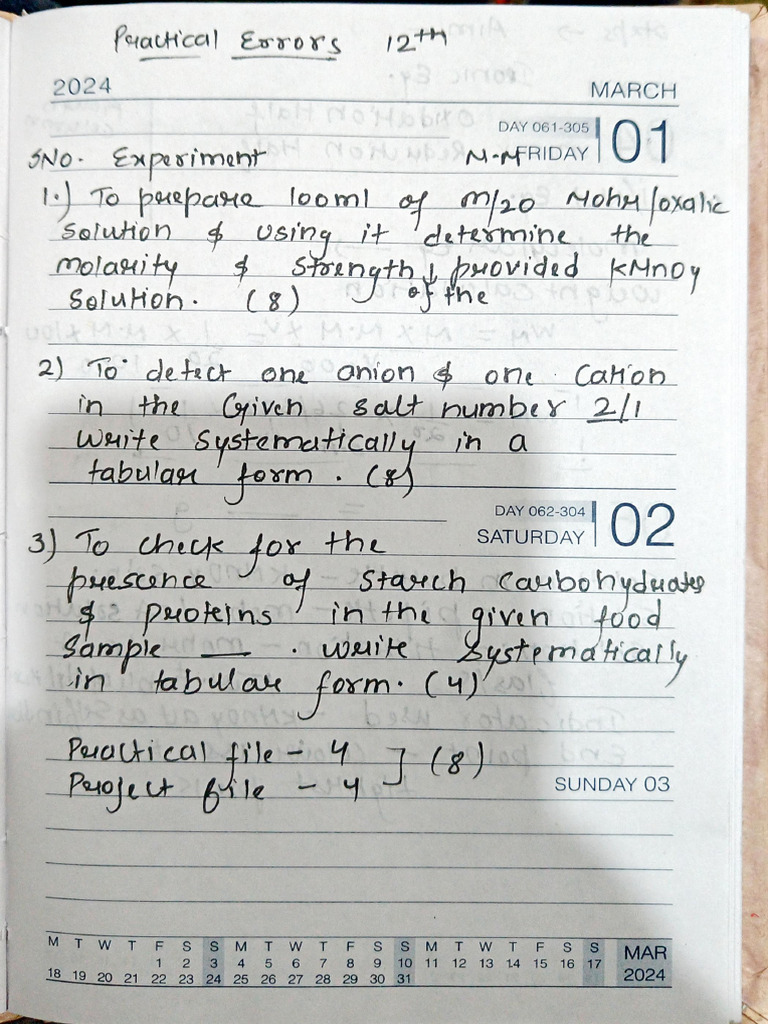 Practical Errors 12th
2024 MARCH
DAY 061-305
FRIDAY 01
SNO. Experiment M-M
1.) To prepare 100ml of M/20 Mohr/oxalic
solution & using it determine the
molarity & strength of the provided KMnO4
solution. (8)
2) To detect one anion & one cation
in the Given salt number 2/1
write systematically in a
tabular form. (8)
DAY 062-304
SATURDAY 02
3) To check for the
prescence of starch carbohydrates
& proteins in the given food
sample __. write systematically
in tabular form. (4)
Practical file - 4
Project file - 4 ] (8)
SUNDAY 03
M T W T F S S M T W T F S S M T W T F S S MAR
1 2 3 4 5 6 7 8 9 10 11 12 13 14 15 16 17
18 19 20 21 22 23 24 25 26 27 28 29 30 31 2024